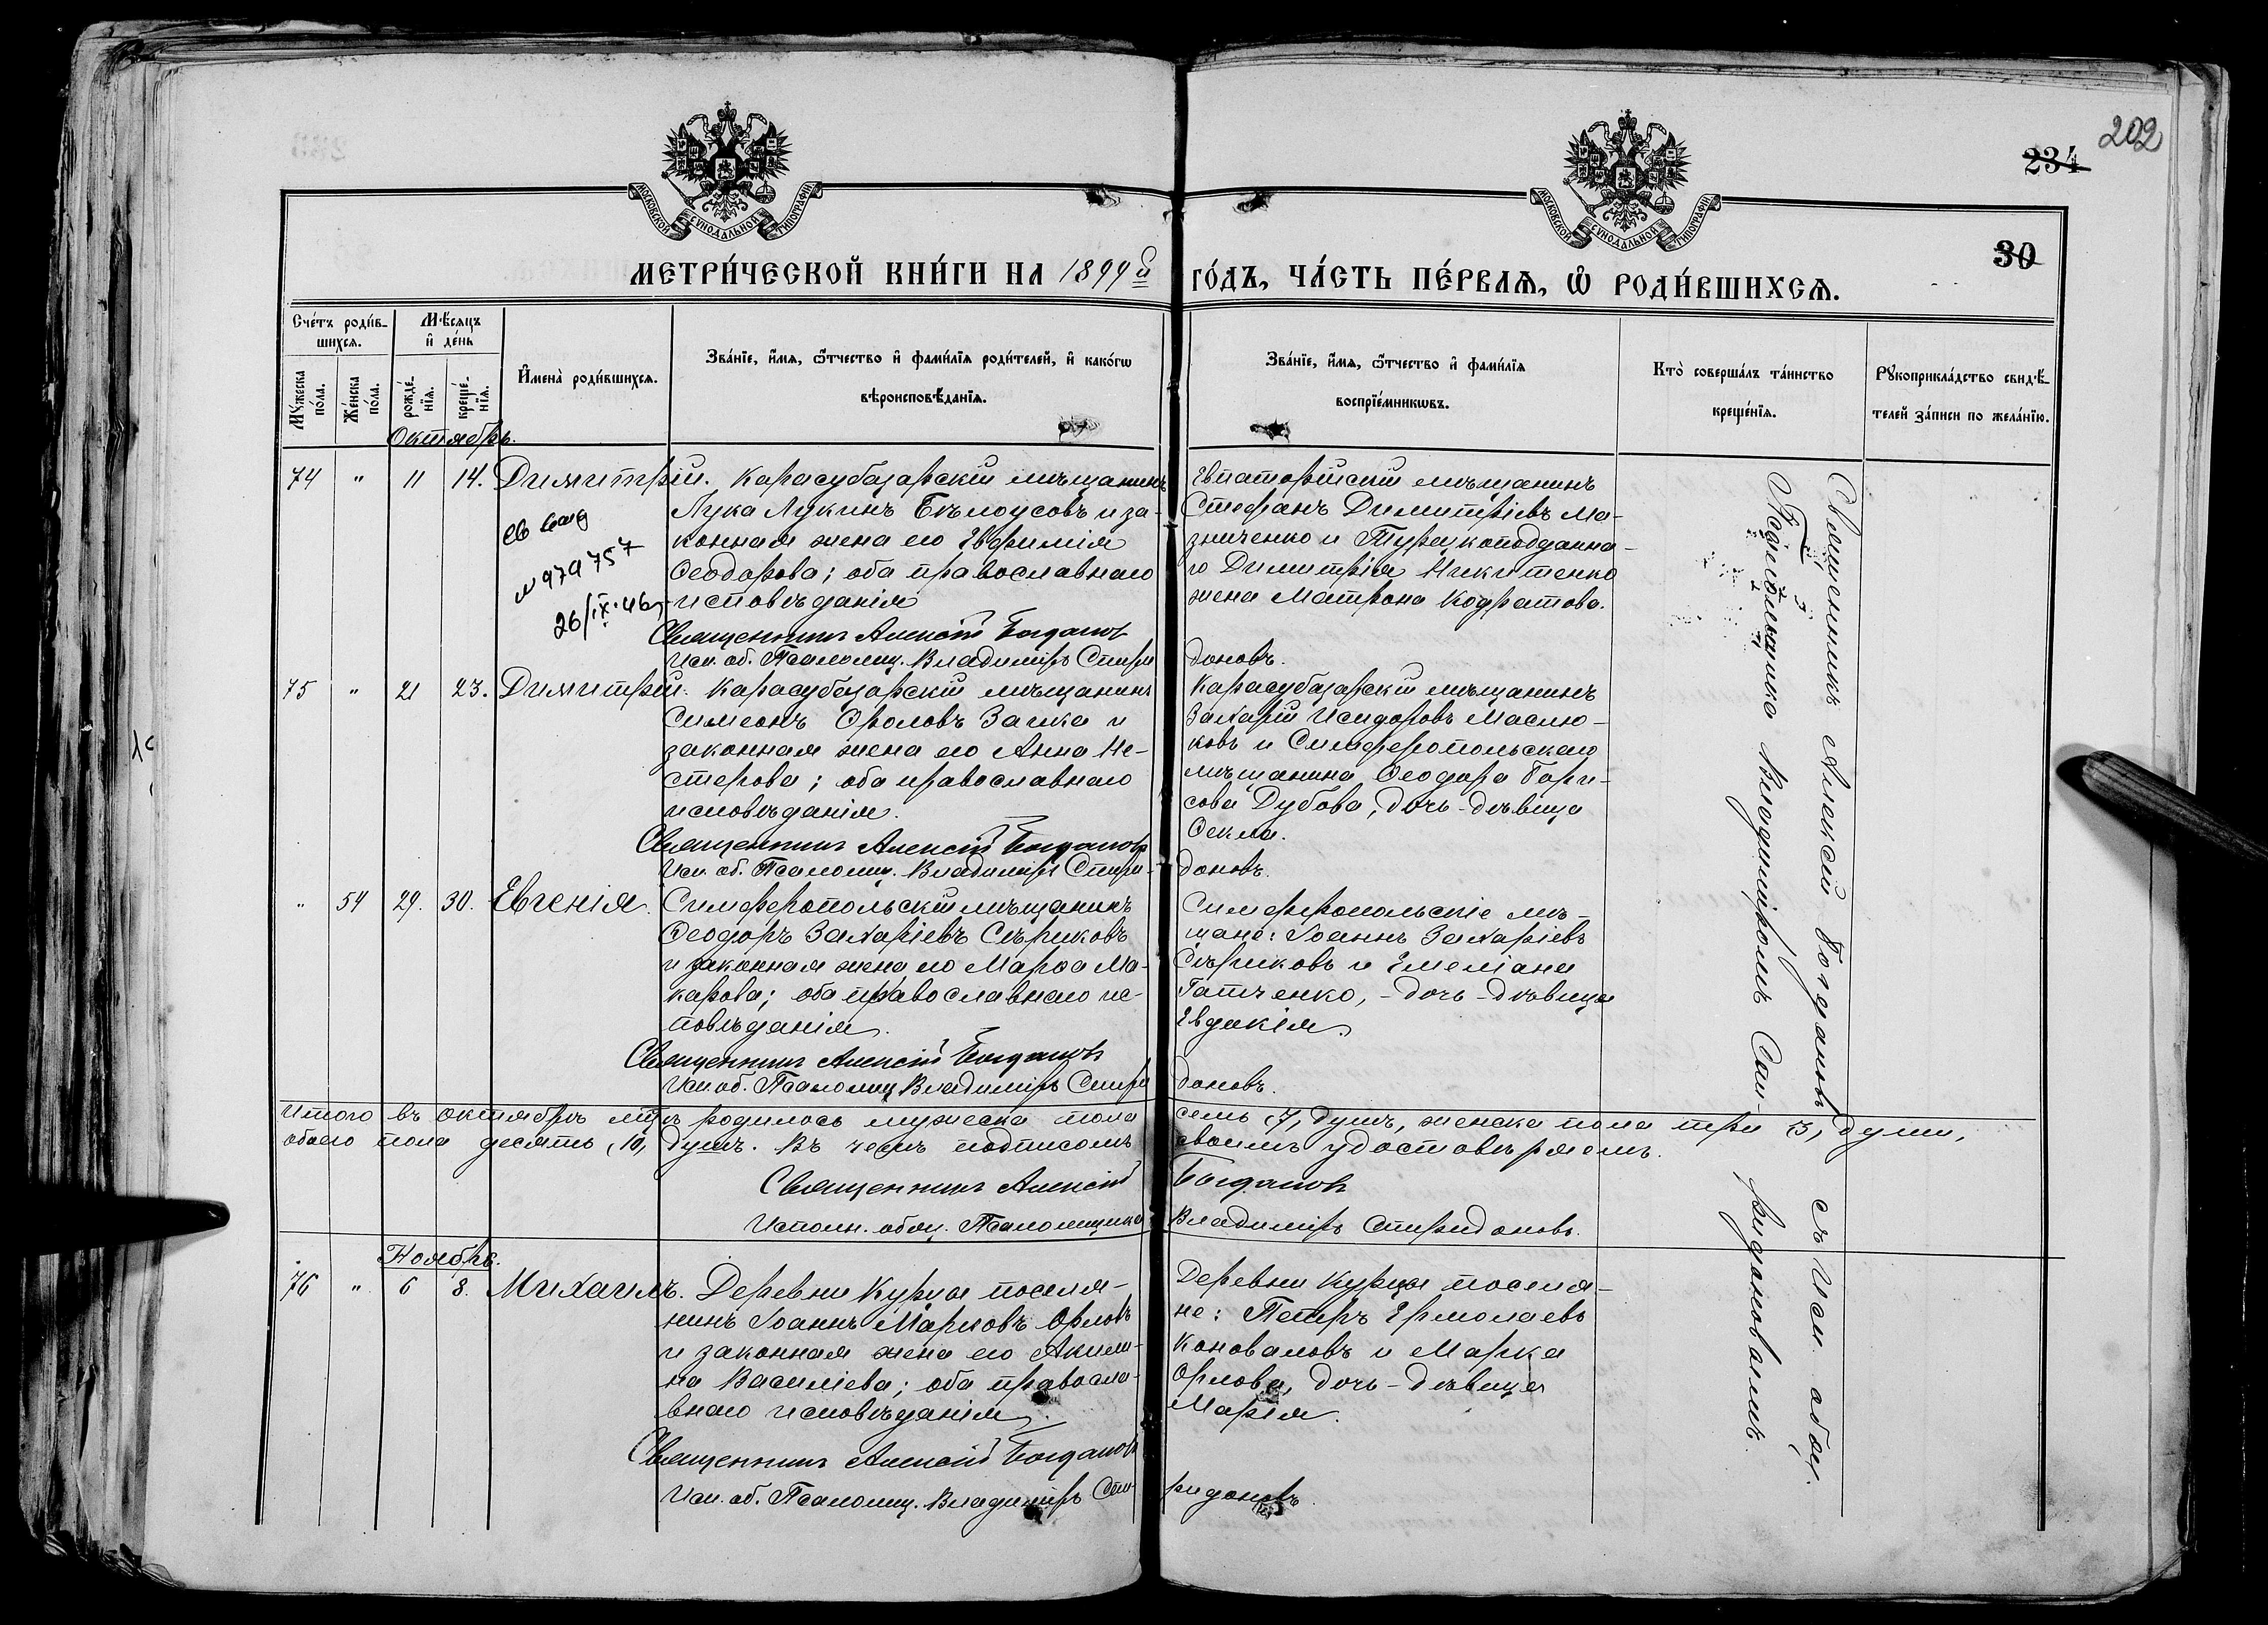 202
234
30
МОСКОВСКОЙ СѴНОДАЛЬНОЙ ТИПОГРАФІИ
МОСКОВСКОЙ СѴНОДАЛЬНОЙ ТИПОГРАФІИ
МЕТРИ́ЧЕСКОЙ КНИ́ГИ НА 1899й ГО́ДЪ, ЧА́СТЬ ПЕ́РВАѦ, Ѡ҆ РОДИ́ВШИХСѦ.
Сче́тъ роди́в-
шихсѧ.
Мꙋ́жеска по́ла.
Же́нска по́ла.
Мѣ́сѧцъ
и҆ де́нь
рожде́-
нїѧ.
креще́-
нїѧ.
И҆мена̀ роди́вшихсѧ.
Зва́нїе, и҆́мѧ, ѻ҆́тчество и҆ фами́лїѧ роди́телей, и҆ како́гѡ
вѣроисповѣ́данїѧ.
Зва́нїе, и҆́мѧ, ѻ҆́тчество и҆ фами́лїѧ
воспрїе́мникѡвъ.
Кто̀ соверша́лъ та́инство
креще́нїѧ.
Рꙋкоприкла́дство свидѣ́-
телей за́писи по жела́нїю.
Октябрь.
74 " 11 14. Димитрій. Карасубазарскій мѣщанинъ
Лука Лукинъ Бѣлоусовъ и за-
конная жена его Евфимія
Ѳеодорова; оба православнаго
исповѣданія
Священникъ Алексій Богданов
Исп. об. Псаломщ. Владиміръ Спири
доновъ.
Евпаторійскій мѣщанинъ
Стефанъ Димитріевъ Ма-
зниченко и Турецкоподданна-
го Димитрія Никитенко
жена Матрона Кодратова.
26/IX.46г
75 " 21 23. Димитрій. Карасубазарскій мѣщанинъ
Симеонъ Фроловъ Заика и
законная жена его Анна Не-
стерова; оба православнаго
исповѣданія.
Священникъ Алексій Богдановъ
Исп. об. Псаломщ. Владиміръ Спири-
доновъ.
Карасубазарскій мѣщанинъ
Захарій Исидоровъ Маслю-
ковъ и Симферопольскаго
мѣщанина Ѳеодора Бори-
сова Дубова, дочь-дѣвица
Ѳекла.
" 54 29. 30. Евгенія. Симферопольскій мѣщанинъ
Ѳеодоръ Захаріевъ Сѣриковъ
и законная жена его Марѳа Ма-
карова; оба православнаго ис-
повѣданія.
Священникъ Алексій Богдановъ
Исп. об. Псаломщ Владиміръ Спири
доновъ.
Симферопольскіе мѣ-
щане: Іоаннъ Захаріевъ
Сѣриковъ и Емеліана
Гатченко, - дочь - дѣвица
Евдокія.
Итого въ октябрѣ мцѣ родилось мужеска пола семь, 7, душъ, женска пола три 3, души,
обоего пола десять, 10, душъ. Въ чемъ подписомъ своимъ удостовѣряемъ.
Священникъ Алексій Богдановъ
Исполн. обяз. Псаломщика Владиміръ Спиридоновъ.
Ноябрь.
76 " 6 8. Михаилъ. Деревни Курцы поселя-
нинъ Іоаннъ Марковъ Орловъ
и законная жена его Акили-
на Василіева; оба правосла-
внаго исповѣданія.
Священникъ Алексій Богдановъ
Исп. об. Псаломщ. Владиміръ Спи-
ридоновъ
Деревни Курцы поселя-
не: Петръ Ермолаевъ
Коноваловъ и Марка
Орлова, дочь - дѣвица
Марія.
Священникъ Алексій Богдановъ съ Исп. обяз.
Псаломщика Владиміромъ Спи-
ридоновымъ.